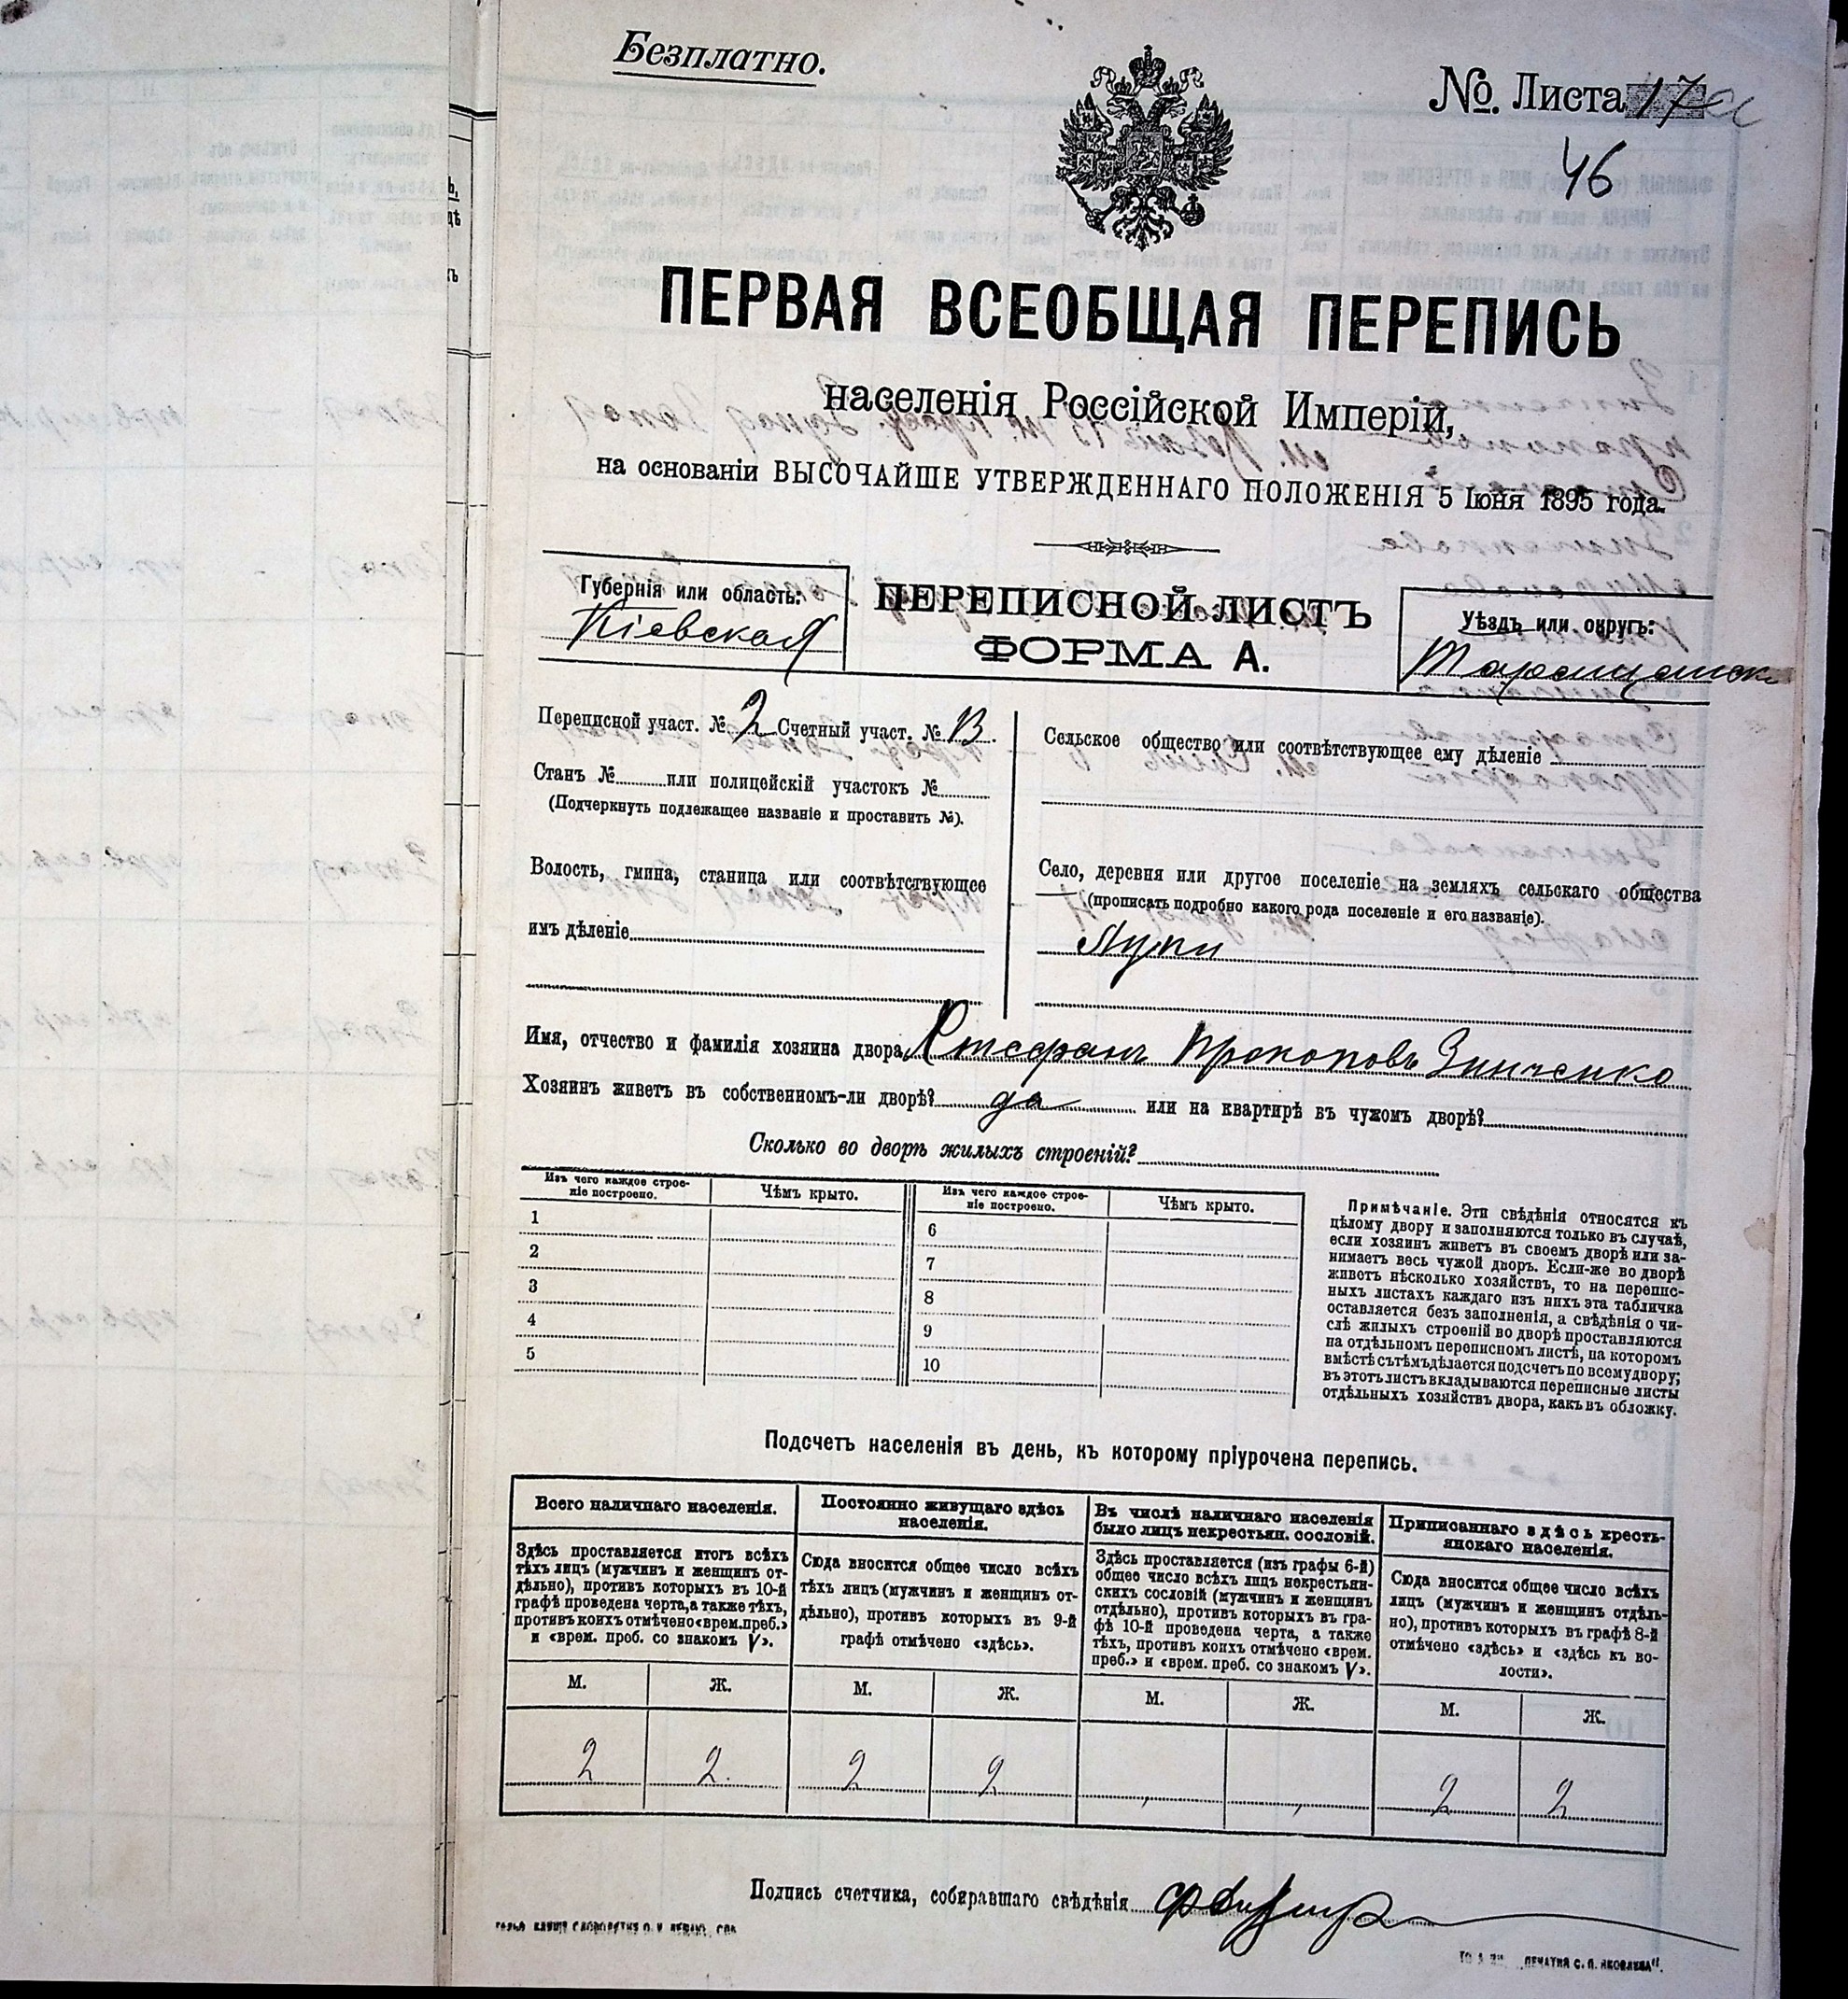 Безплатно.
№. Листа 17а
46
ПЕРВАЯ ВСЕОБЩАЯ ПЕРЕПИСЬ
населенія Россійской Имперіи,
на основаніи ВЫСОЧАЙШЕ УТВЕРЖДЕННАГО ПОЛОЖЕНІЯ 5 Іюня 1895 года.
Губернія или область:
Кіевская
ПЕРЕПИСНОЙ ЛИСТЪ
ФОРМА А.
Уѣздъ или округъ:
Таращанск
Переписной участ. № 2 Счетный участ. № 13.
Станъ № или полицейскій участокъ №
(Подчеркнуть подлежащее названіе и проставить №).
Волость, гмина, станица или соотвѣтствующее
имъ дѣленіе
Сельское общество или соотвѣтствующее ему дѣленіе
Село, деревня или другое поселеніе на земляхъ сельскаго общества
(прописать подробно какого рода поселеніе и его названіе).
Имя, отчество и фамилія хозяина двора Стефанъ Прокоповъ Зинченко
Хозяинъ живетъ въ собственномъ-ли дворѣ? да или на квартирѣ въ чужомъ дворѣ?
Сколько во дворѣ жилыхъ строеній?
Изъ чего каждое строе-
ніе построено.
Чѣмъ крыто.
1
2
3
4
5
Изъ чего каждое строе-
ніе построено.
Чѣмъ крыто.
6
7
8
9
10
Примѣчаніе. Эти свѣдѣнія относятся къ
цѣлому двору и заполняются только въ случаѣ,
если хозяинъ живетъ въ своемъ дворѣ или за-
нимаетъ весь чужой дворъ. Если-же во дворѣ
живетъ нѣсколько хозяйствъ, то на перепис-
ныхъ листахъ каждаго изъ нихъ эта табличка
оставляется безъ заполненія, а свѣдѣнія о чи-
слѣ жилыхъ строеній во дворѣ проставляются
на отдѣльномъ переписномъ листѣ, на которомъ
вмѣстѣ съ тѣмъ дѣлается подсчетъ по всему двору;
въ этотъ листъ вкладываются переписные листы
отдѣльныхъ хозяйствъ двора, какъ въ обложку.
Подсчетъ населенія въ день, къ которому пріурочена перепись.
Всего наличнаго населенія.
Здѣсь проставляется итогъ всѣхъ
тѣхъ лицъ (мужчинъ и женщинъ от-
дѣльно), противъ которыхъ въ 10-й
графѣ проведена черта, а также тѣхъ,
противъ коихъ отмѣчено «врем. преб.»
и «врем. преб. со знакомъ V».
М. Ж.
2 2.
Постоянно живущаго здѣсь
населенія.
Сюда вносится общее число всѣхъ
тѣхъ лицъ (мужчинъ и женщинъ от-
дѣльно), противъ которыхъ въ 9-й
графѣ отмѣчено «здѣсь».
М. Ж.
2 2
Въ числѣ наличнаго населенія
было лицъ некрестьян. сословій.
Здѣсь проставляется (изъ графы 6-й)
общее число всѣхъ лицъ некрестьян-
скихъ сословій (мужчинъ и женщинъ
отдѣльно), противъ которыхъ въ гра-
фѣ 10-й проведена черта, а также
тѣхъ, противъ коихъ отмѣчено «врем.
преб.» и «врем. преб. со знакомъ V».
М. Ж.
Приписаннаго здѣсь кресть-
янскаго населенія.
Сюда вносится общее число всѣхъ
лицъ (мужчинъ и женщинъ отдѣль-
но), противъ которыхъ въ графѣ 8-й
отмѣчено «здѣсь» и «здѣсь къ во-
лости».
М. Ж.
2 2
Подпись счетчика, собиравшаго свѣдѣнія
ПЕЧАТНЯ С. П. ЯКОВЛЕВА".